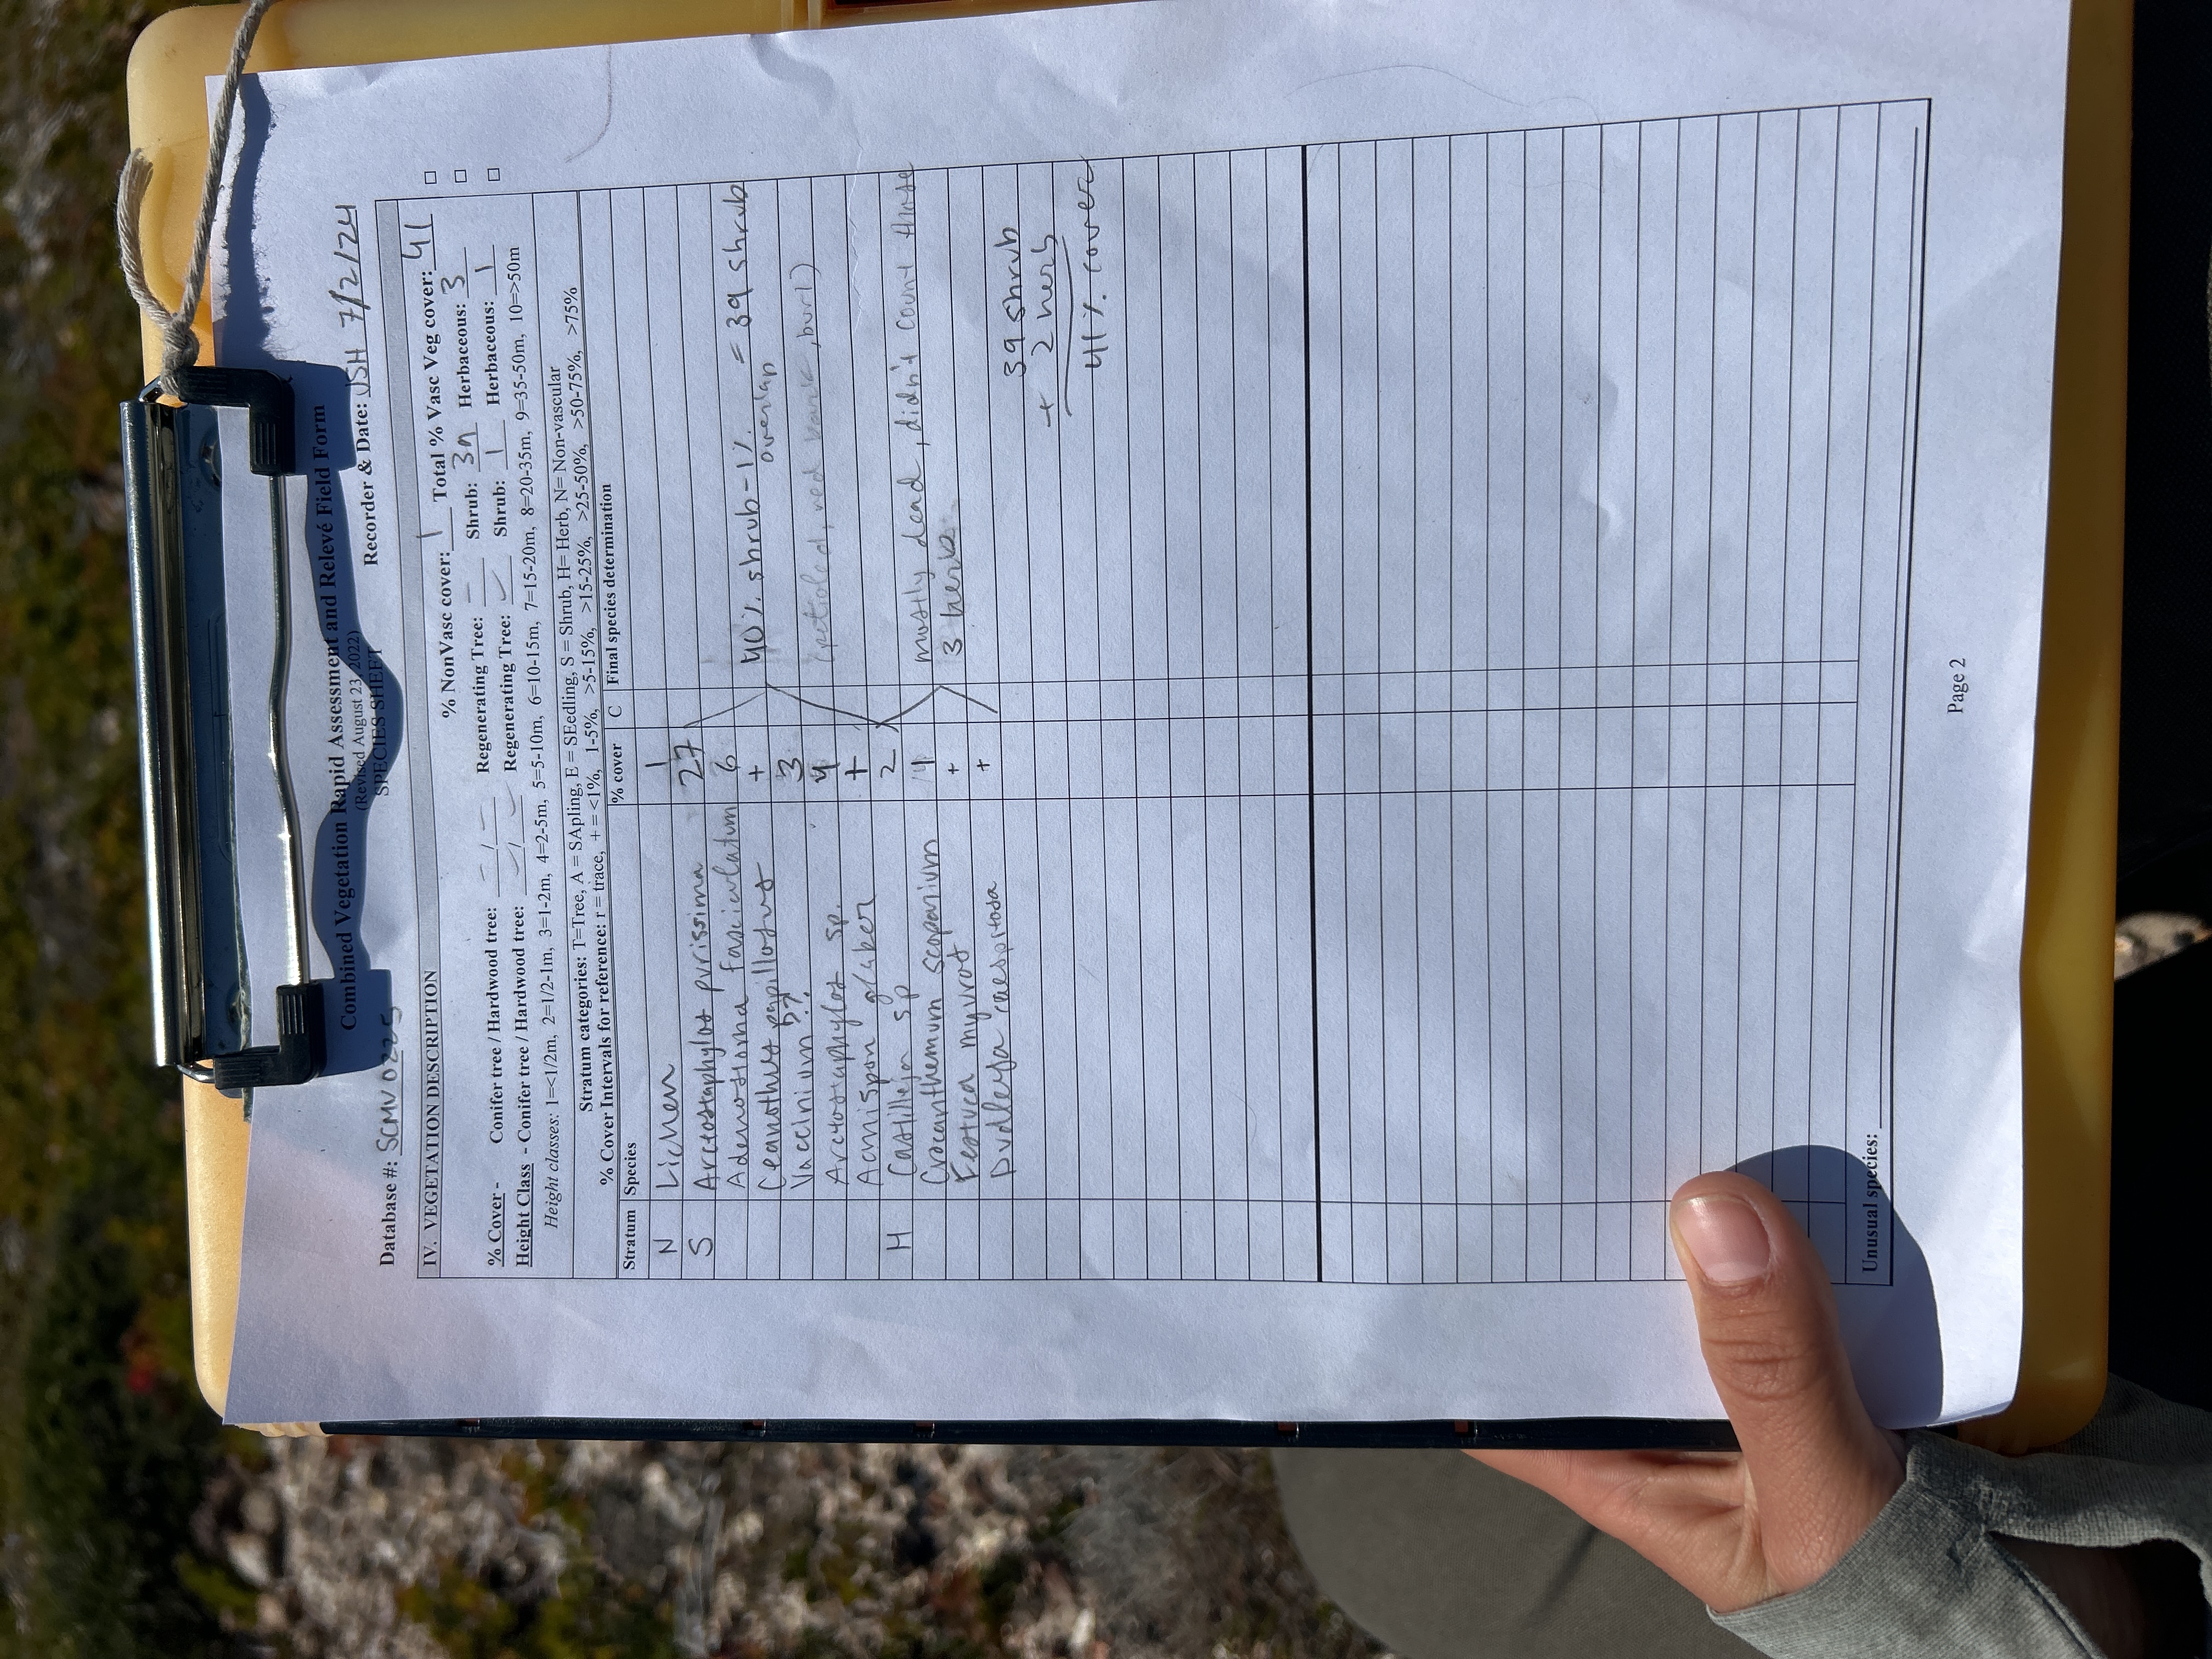 Combined Vegetation Rapid Assessment and Relevé Field Form
(Revised August 23, 2022)
SPECIES SHEET
Database #: SCMV0225 Recorder & Date: JSH 7/2/24
IV. VEGETATION DESCRIPTION
% NonVasc cover: 1 Total % Vasc Veg cover: 41
% Cover - Conifer tree / Hardwood tree: - / - Regenerating Tree: - Shrub: 39 Herbaceous: 3
Height Class - Conifer tree / Hardwood tree: - / - Regenerating Tree: - Shrub: 1 Herbaceous: 1
Height classes: 1=<1/2m, 2=1/2-1m, 3=1-2m, 4=2-5m, 5=5-10m, 6=10-15m, 7=15-20m, 8=20-35m, 9=35-50m, 10=>50m
Stratum categories: T=Tree, A = SApling, E = SEedling, S = Shrub, H= Herb, N= Non-vascular
% Cover Intervals for reference: r = trace, + = <1%, 1-5%, >5-15%, >15-25%, >25-50%, >50-75%, >75%
Stratum Species % cover C Final species determination
N Lichen 1
S Arctostaphylos purissima 27
Adenostoma fasciculatum 6
40% shrub - 1% overlap = 39 shrub
Ceanothus papillosus +
Vaccinium ?? 3
Arctostaphylos sp. 4 (petioled, red bark, burl)
Acmispon glaber +
H Castilleja sp 2
Crocanthemum scoparium 4 mostly dead, didn't count those
Festuca myuros + 3 herbs
Dudleya caespitosa +
39 shrub
+ 2 herb
41% cover
Unusual species:
Page 2